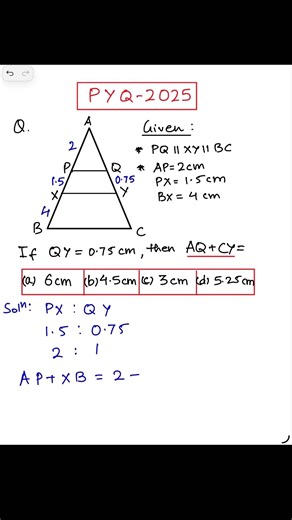 PYQ-2025
Q.
Given:
* PQ || XY || BC
* AP=2cm
PX=1.5cm
BX=4cm
A
2
P
Q
1.5
0.75
X
Y
4
B
C
If QY=0.75cm, then AQ+CY=
(a) 6cm (b) 4.5cm (c) 3cm (d) 5.25cm
Solⁿ: PX : QY
1.5 : 0.75
2 : 1
AP+XB = 2 -